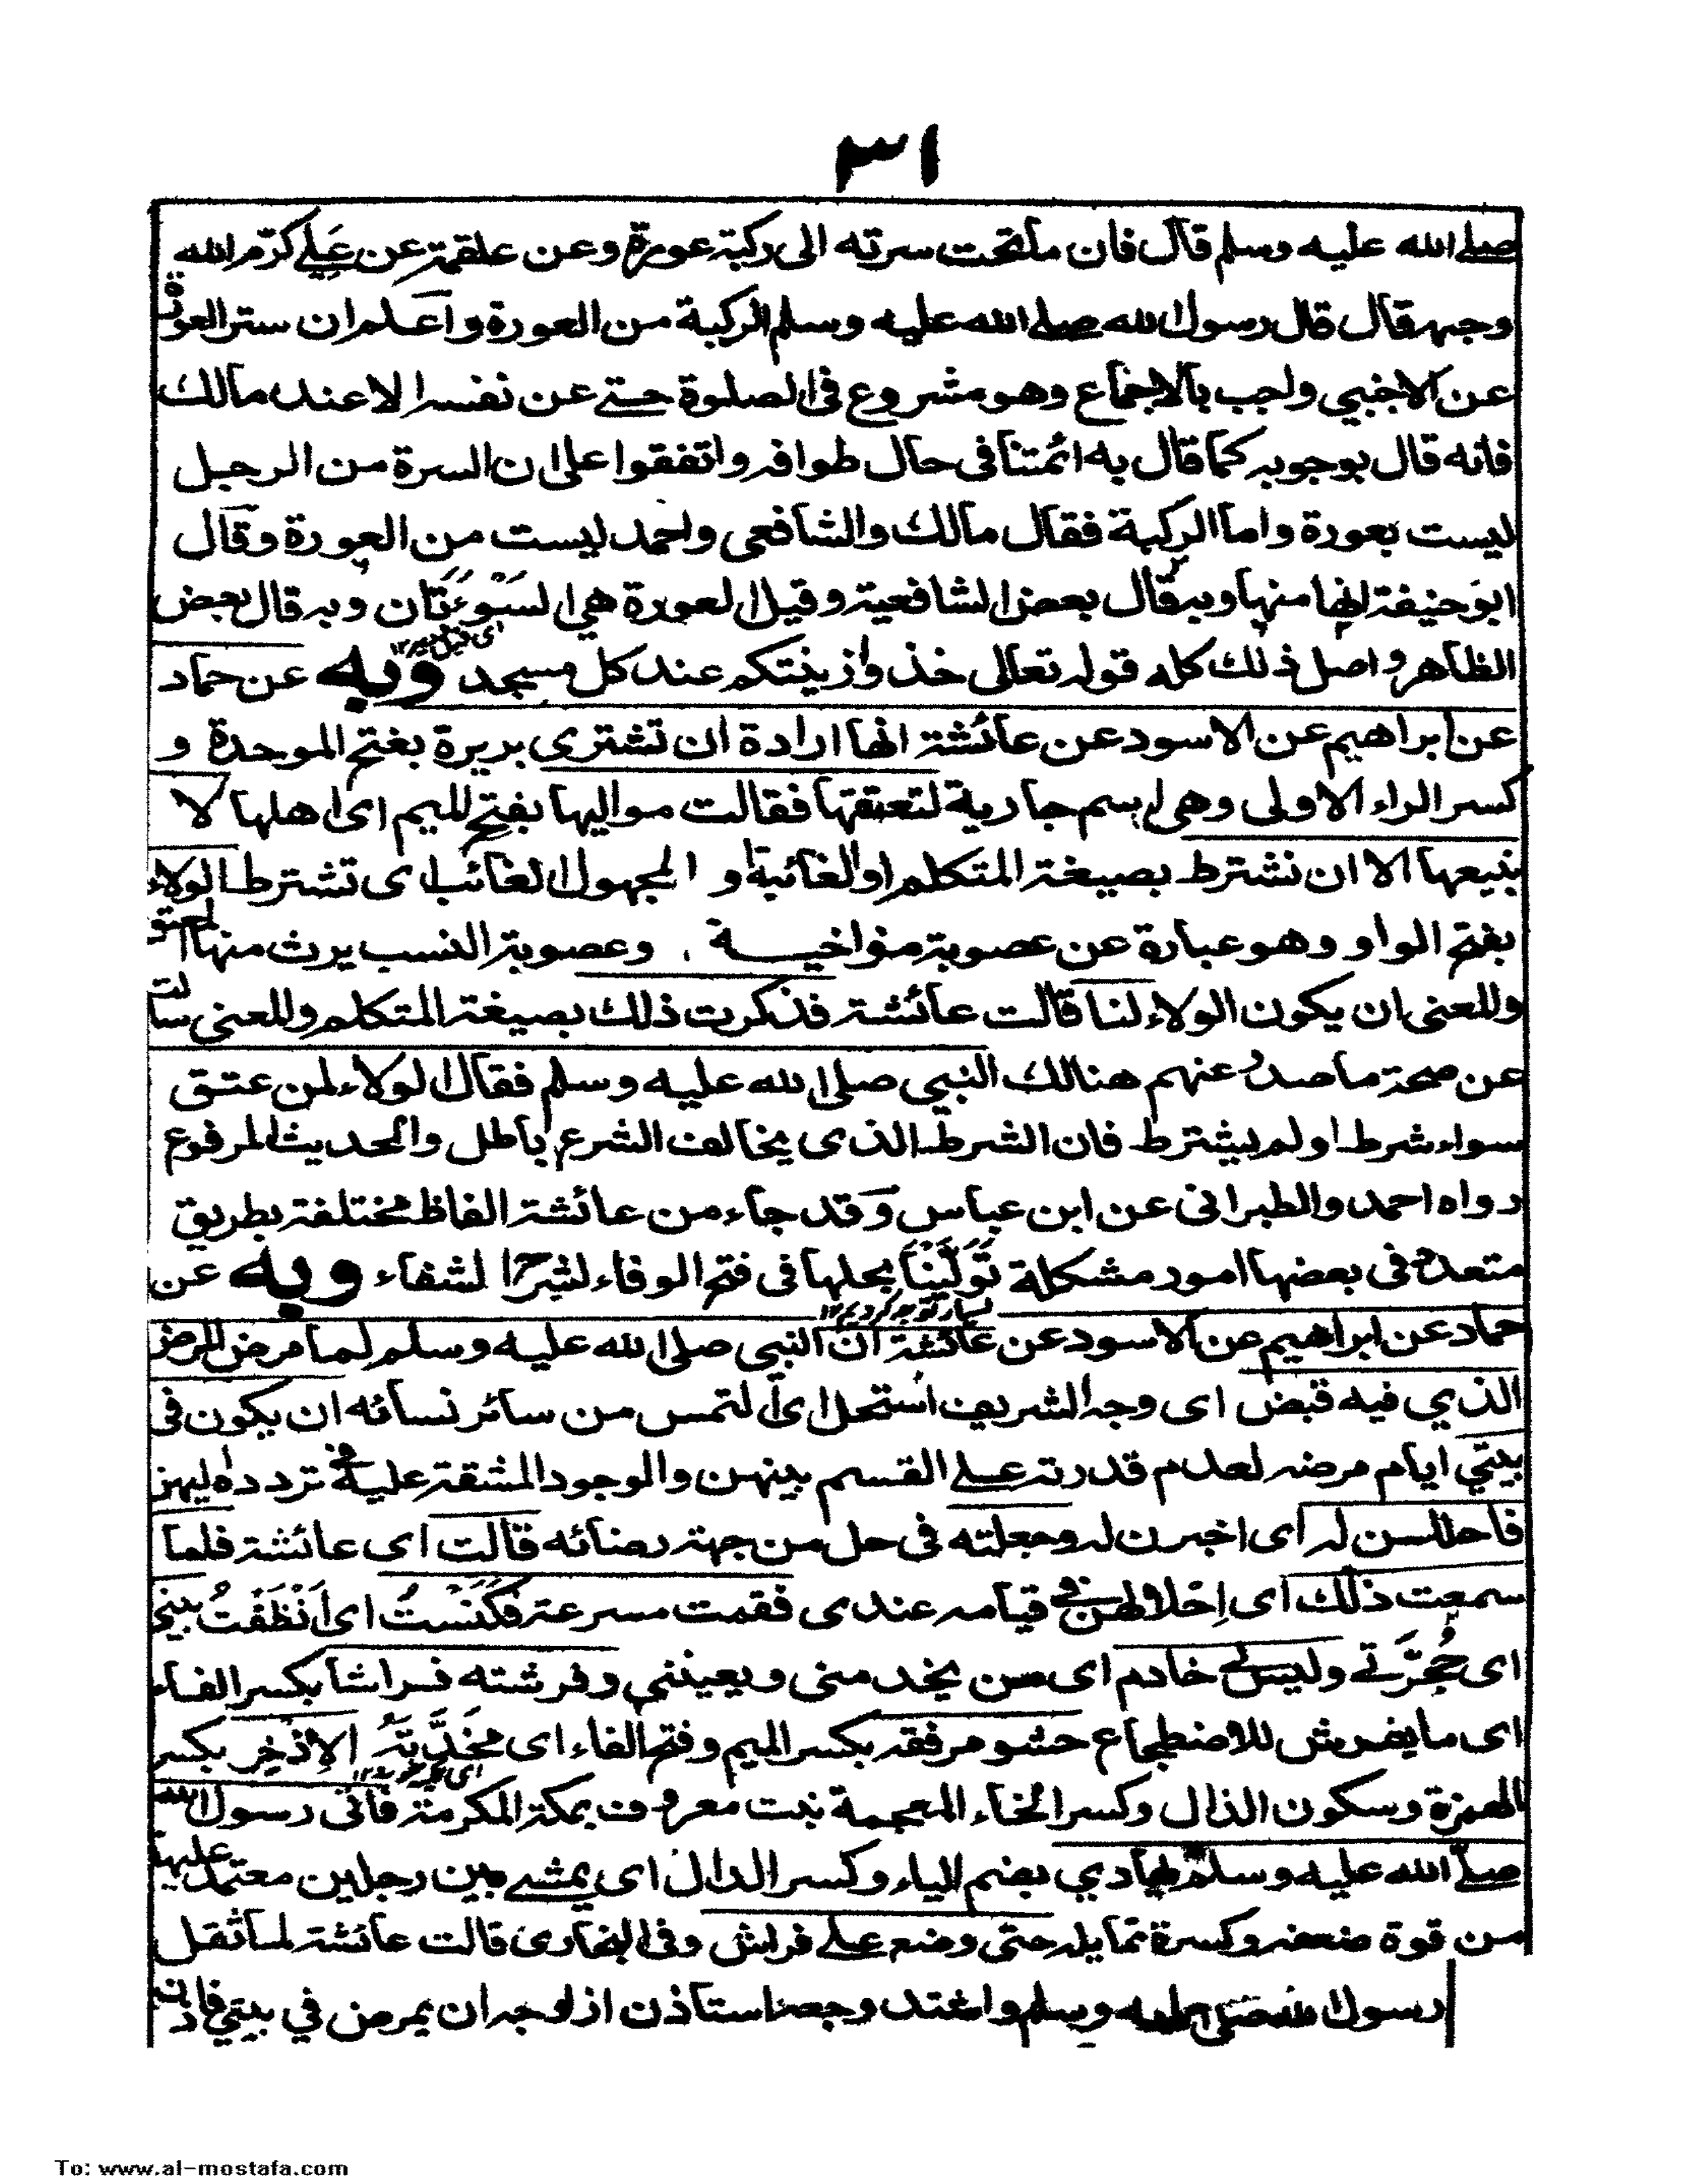 ٣١
صلے الله عليه وسلم قال فان ما تحت سرته الى ركبته عورة وعن علقمة عن عَلِے كرّم الله
وجهه قال قال رسول الله صلے الله عليه وسلم الركبة من العورة واعلم ان ستر العورة
عن الاجنبي واجب بالاجماع وهو مشروع فى الصلوة حتے عن نفسه الا عند مالك
فانه قال بوجوبه كما قال به ائمتنا فى حال طوافه واتفقوا على ان السرة من الرجل
ليست بعورة واما الركبة فقال مالك والشافعى واحمد ليست من العورة وقال
ابو حنيفة انها منها وبه قال بعض الشافعية وقيل العورة هى السَوْءَتَان وبه قال بعض
الظاهر واصل ذلك كله قوله تعالى خذوا زينتكم عند كل مسجد وبه عن حماد
عن ابراهيم عن الاسود عن عائشة انها ارادة ان تشترى بريرة بفتح الموحدة و
كسر الراء الاولى وهى اسم جارية لتعتقها فقالت مواليها بفتح الميم اى اهلها لا
نبيعها الا ان نشترط بصيغة المتكلم او الغائبة او المجهول الغائب اى تشترط الولاء
بفتح الواو وهو عبارة عن عصوبة متراخية وعصوبة النسب يرث منها المعتق
والمعنى ان يكون الولاء لنا قالت عائشة فذكرت ذلك بصيغة المتكلم والمعنى سألت
عن صحة ما صدر عنهم هنالك النبي صلى الله عليه وسلم فقال الولاء لمن عتق
سواء شرط او لم يشترط فان الشرط الذى يخالف الشرع باطل والحديث المرفوع
رواه احمد والطبرانى عن ابن عباس وقد جاء من عائشة الفاظ مختلفة بطريق
متعددة فى بعضها امور مشكلة تَوَلَّيْنَا بحلها فى فتح الوفاء لشرح الشفاء وبه عن
حماد عن ابراهيم عن الاسود عن عائشة ان النبي صلى الله عليه وسلم لما مرض المرض
الذي فيه قبض اى وجه الشريف استحل اى التمس من سائر نسائه ان يكون فى
بيتي ايام مرضه لعدم قدرته علے القسم بينهن والوجود المشقة عليه فے تردده اليهن
فاحللن له اى اخبرن له وجعلته فى حل من جهة رضائه قالت اى عائشة فلما
سمعت ذلك اى اِحلالهن فے قيامه عندى فقمت مسرعة فَكَنَسْتُ اى اَنْظَفْتُ بيتي
اى حُجْرَتے وليس لے خادم اى من يخدمنى ويعيننى وفرشته فراشا بكسر الفاء
اى ما يفرش للاضطجاع حشو مرفقه بكسر الميم وفتح الفاء اى مخَدَّتهُ الاِذْخِر بكسر
الهمزة وسكون الذال وكسر الخاء المعجمة نبت معروف بمكة المكرمة فاتى رسول الله
صلے الله عليه وسلم يهادي بضم الياء وكسر الدال اى يمشے بين رجلين معتمد عليهما
من قوة ضعفه وكسرة تمايله حتى وضع علے فراش وفى البخارى قالت عائشة لما ثقل
رسول الله صلى الله عليه وسلم واشتد وجعه استاذن ازواجه ان يمرض في بيتي فاذن
To: www.al-mostafa.com